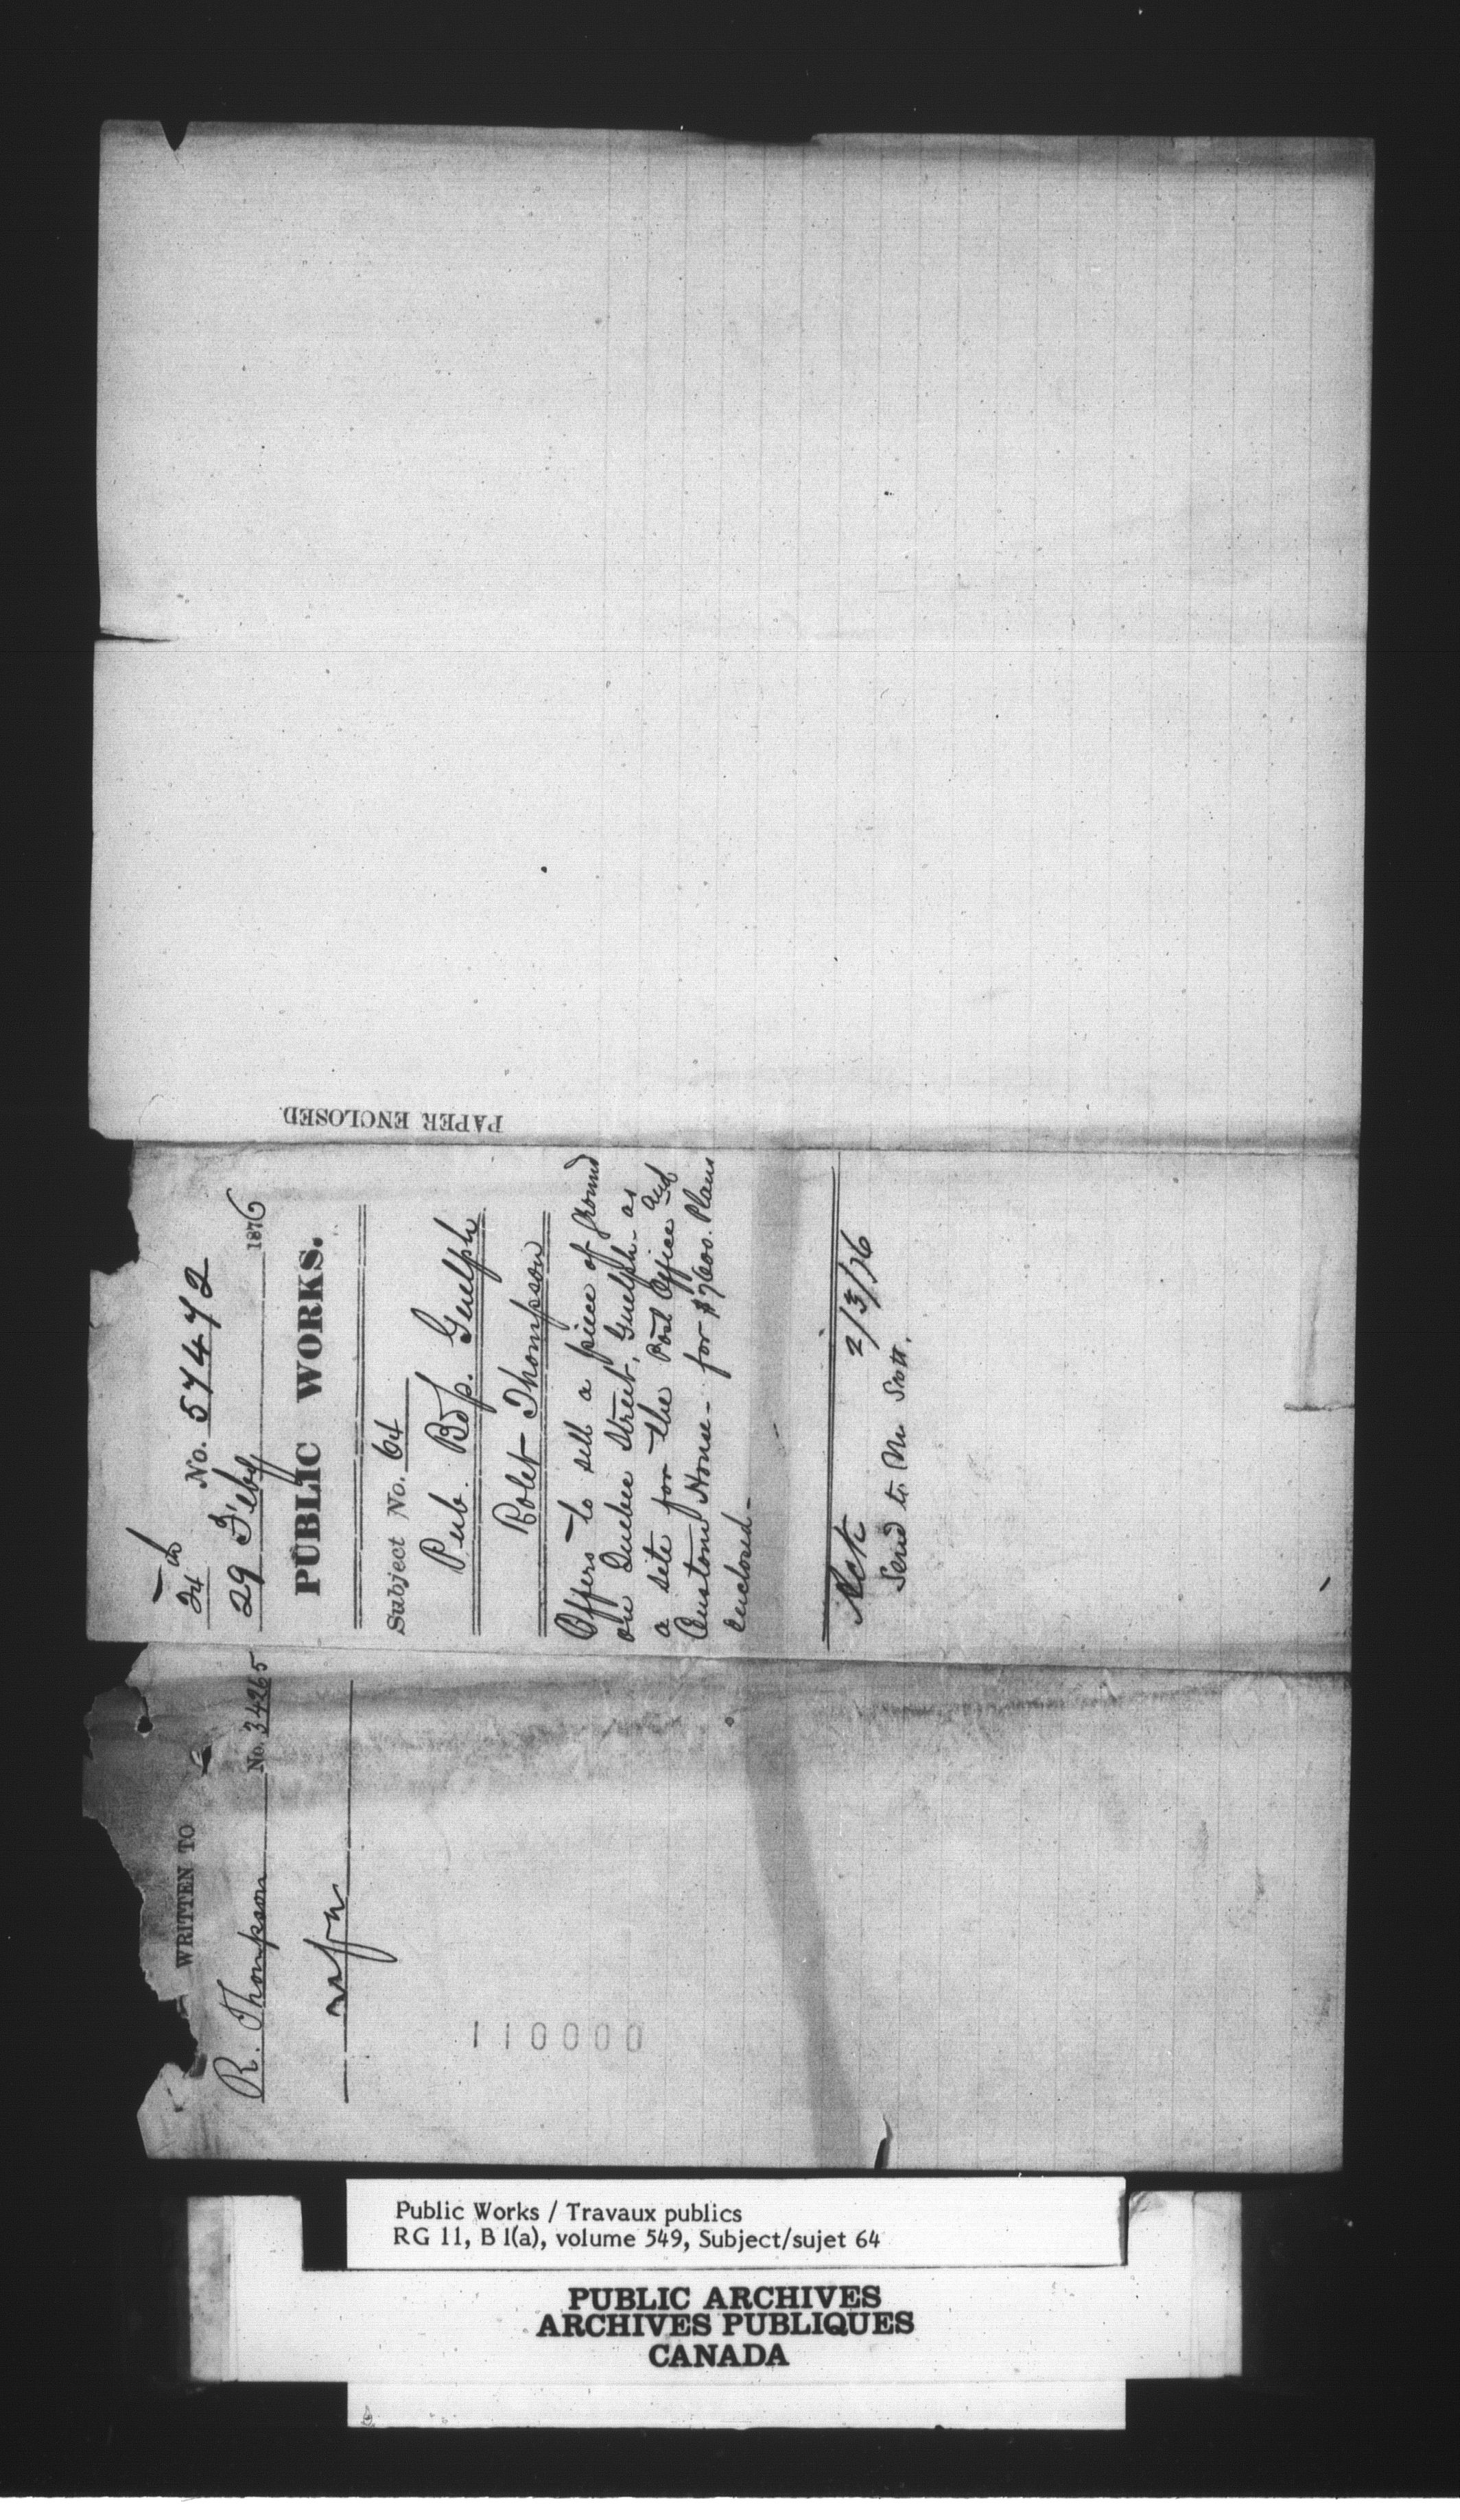 WRITTEN TO
R. Thompson No. 34265
110000
24th
No. 57472
29 Feby 1876
PUBLIC WORKS.
Subject No. 64
Pub. Bdgs. Guelph
Robt Thompson
Offers to sell a piece of ground
on Quebec Street, Guelph - as
a site for the Post Office and
Customs House - for $7600. Plans
enclosed -
Ack 2/3/76
Send to Mr Scott.
PAPER ENCLOSED
Public Works / Travaux publics
RG 11, B 1(a), volume 549, Subject/sujet 64
PUBLIC ARCHIVES
ARCHIVES PUBLIQUES
CANADA